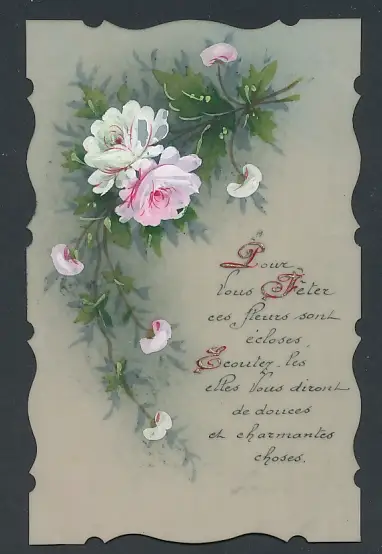 Pour
Vous Fêter
ces fleurs sont
écloses,
Ecoutez-les
elles Vous diront
de douces
et charmantes
choses.